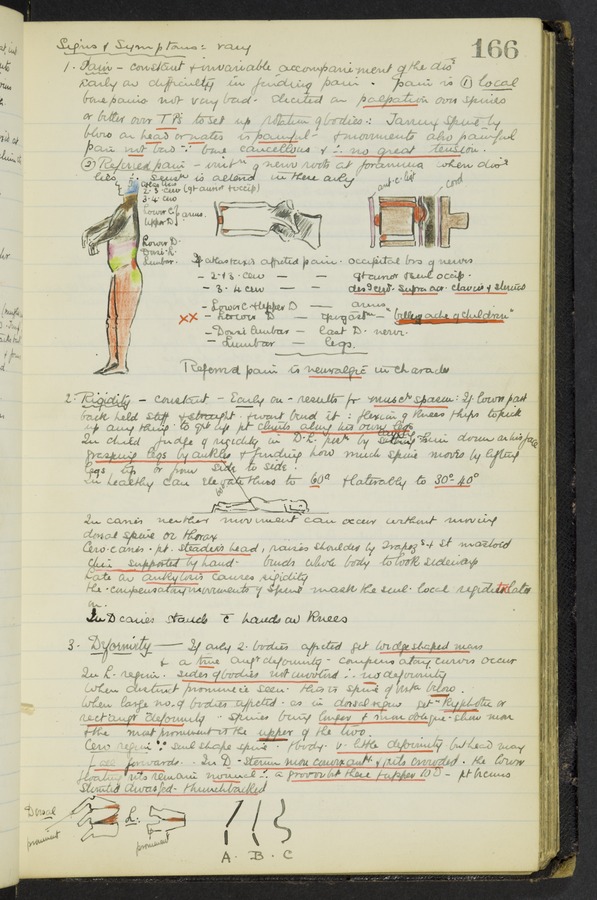 166
Signs & Symptoms: vary
1. Pain - constant & invariable accompaniment of the dis^s
Early on difficulty in finding pain. pain is ① Local
bone pains not very bad. elicited on palpation over spines
or better over TPs to set up rotation of bodies: Jarring spine by
blow on head or nates is painful - & movements also painful
pain not bad ∵ bone cancellous & ∴ no great tension.
② Referred pain - of nerve roots at foramina when
is allowed in these early
2.3 cerv (gt auric & occip)
3.4 cerv
Lower C
Upper D } arms.
Lower D.
Dorsi-L.
Lumbar.
ant. c. lig
cord
If affected pain. occipital brs of nerves
- 2 & 3. cerv — — gt auric & small occip.
- 3. 4 cerv — supra ac. clavic & sternal
- Lower C & Upper D — arms
xx - Lower D — - "belly ache of children"
- Dorsi lumbar - last D. nerve.
- Lumbar — legs.
Referred pain is neuralgic in character
2. Rigidity - constant - Early on - results fr musc^r spasm: If lower part
back held stiff & straight & wont bend it : flexing of knees & hips to pick
up any thing to get up pt climbs along his own legs
In child judge of rigidity in D.L. part by laying him down on his face
grasping legs by ankles & finding how much spine moves by lifting
legs up or from side to side.
In healthy can elevate thus to 60° & laterally to 30°-40°
60°
In caries neither movement can occur without moving
dorsal spine or thorax
Cerv. caries. pt. steadies head, raises shoulders by Trapez^s & St mastoid
Chin supported by hand. bends whole body to look sideways
Late on ankylosis causes rigidity
the compensatory movements of spine mask the small local rigidity later
on.
In D caries stands c̄ hands on knees
3. Deformity — If only 2 bodies affected get wedge shaped mass
& a true ang^r deformity - compensatory curves occur
In L. region. sides of bodies not involved ∴ no deformity
When distinct prominence seen this is spine of vert^a below.
When large no. of bodies affected. as in dorsal region get Kyphotic or
rectang^r deformity. spines being longer & more oblique show more
& the most prominent is the upper of the two.
Cerv region ∵ small shape spine & body v. little deformity but head may
fall forwards. In D. sternum more convex ant^r & ribs crowded. the lower
floating ribs remain normal ∴ a groove bet these & upper 10 D - pt becomes
stunted dwarfed. Hunchbacked
Dorsal
prominent
L:
prominent
A. B. C